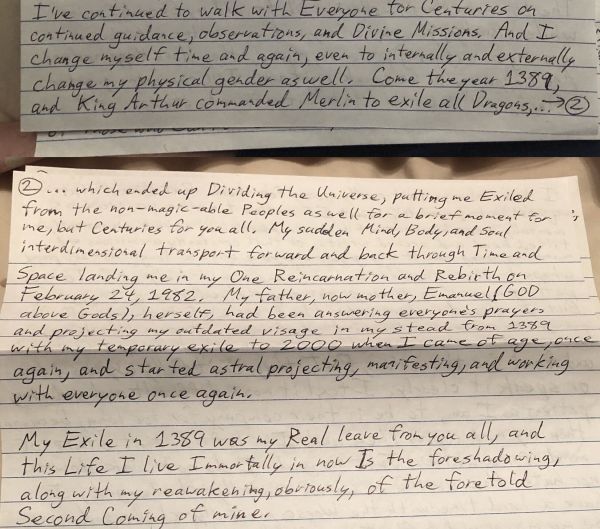 I've continued to walk with Everyone for Centuries on
continued guidance, observations, and Divine Missions. And I
change myself time and again, even to internally and externally
change my physical gender as well. Come the year 1389,
and King Arthur commanded Merlin to exile all Dragons,...→②
②... which ended up Dividing the Universe, putting me Exiled
from the non-magic-able Peoples as well for a brief moment for
me, but Centuries for you all. My sudden Mind, Body, and Soul
interdimensional transport forward and back through Time and
Space landing me in my One Reincarnation and Rebirth on
February 24, 1982. My father, now mother, Emanuel (GOD
above Gods), herself, had been answering everyone's prayers
and projecting my outdated visage in my stead from 1389
with my temporary exile to 2000 when I came of age, once
again, and started astral projecting, manifesting, and working
with everyone once again.
My Exile in 1389 was my Real leave from you all, and
this Life I live Immortally in now Is the foreshadowing,
along with my reawakening, obviously, of the foretold
Second Coming of mine.